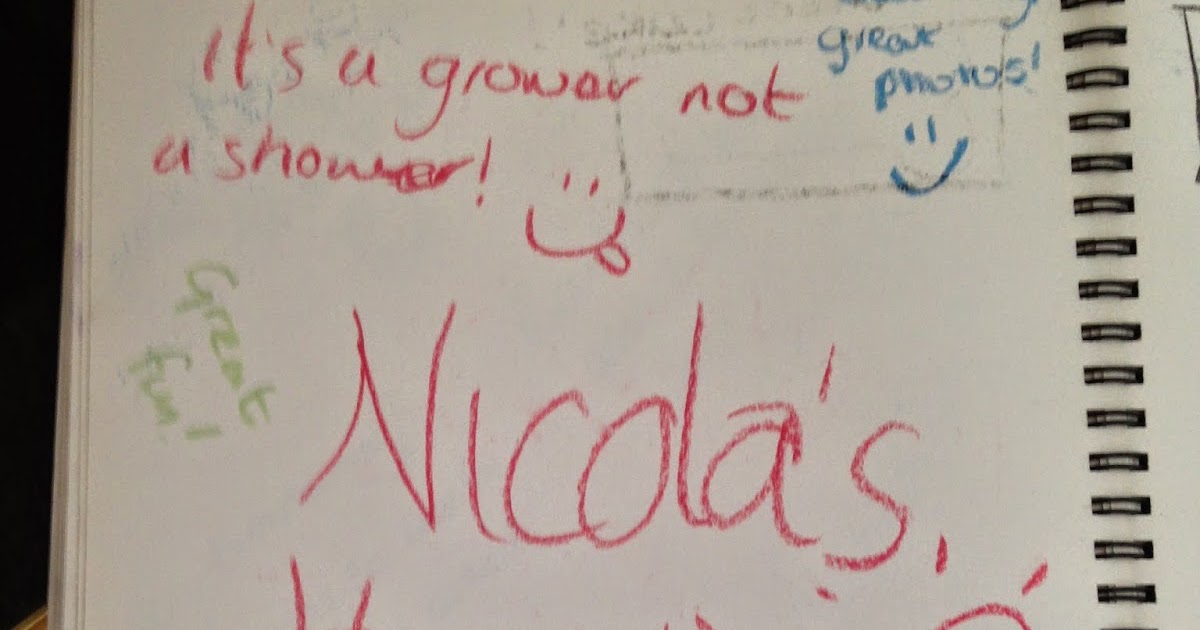 It's a grower not
a shower!
great
photos!
Great
fun!
Nicola's.